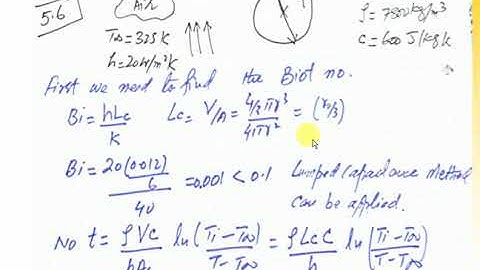 5.6
Air
T∞ = 325K
h = 20W/m²K
ρ = 7800kg/m³
C = 600 J/kgK
First we need to find the Biot no.
Bi = hLc/K Lc = V/A = (4/3 πr³)/(4πr²) = (r₀/3)
Bi = (20(0.012)/6)/40 = 0.001 < 0.1 Lumped Capacitance Method
can be applied.
No t = ρVC/hAs ln(Ti-T∞/T-T∞) = ρLcC/h ln(Ti-T∞/T-T∞)